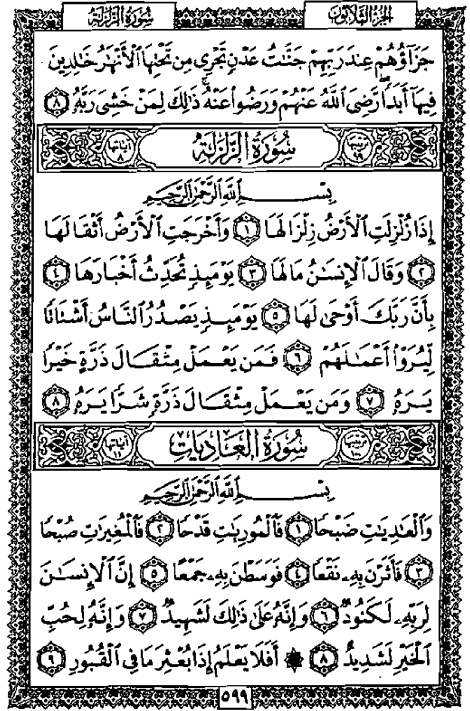 الجزء الثلاثون
سورة الزلزلة
جَزَآؤُهُمْ عِندَ رَبِّهِمْ جَنَّٰتُ عَدْنٍ تَجْرِى مِن تَحْتِهَا ٱلْأَنْهَٰرُ خَٰلِدِينَ
فِيهَآ أَبَدًا رَّضِىَ ٱللَّهُ عَنْهُمْ وَرَضُوا۟ عَنْهُ ذَٰلِكَ لِمَنْ خَشِىَ رَبَّهُۥ ٨
ترتيبها ٩٩ سُورَةُ الزَّلْزَلَةِ آياتها ٨
بِسْمِ ٱللَّهِ ٱلرَّحْمَٰنِ ٱلرَّحِيمِ
إِذَا زُلْزِلَتِ ٱلْأَرْضُ زِلْزَالَهَا ١ وَأَخْرَجَتِ ٱلْأَرْضُ أَثْقَالَهَا
٢ وَقَالَ ٱلْإِنسَٰنُ مَا لَهَا ٣ يَوْمَئِذٍ تُحَدِّثُ أَخْبَارَهَا ٤
بِأَنَّ رَبَّكَ أَوْحَىٰ لَهَا ٥ يَوْمَئِذٍ يَصْدُرُ ٱلنَّاسُ أَشْتَاتًا
لِّيُرَوْا۟ أَعْمَٰلَهُمْ ٦ فَمَن يَعْمَلْ مِثْقَالَ ذَرَّةٍ خَيْرًا
يَرَهُۥ ٧ وَمَن يَعْمَلْ مِثْقَالَ ذَرَّةٍ شَرًّا يَرَهُۥ ٨
ترتيبها سُورَةُ العَادِيَاتِ آياتها ١١
بِسْمِ ٱللَّهِ ٱلرَّحْمَٰنِ ٱلرَّحِيمِ
وَٱلْعَٰدِيَٰتِ ضَبْحًا ١ فَٱلْمُورِيَٰتِ قَدْحًا ٢ فَٱلْمُغِيرَٰتِ صُبْحًا
٣ فَأَثَرْنَ بِهِۦ نَقْعًا ٤ فَوَسَطْنَ بِهِۦ جَمْعًا ٥ إِنَّ ٱلْإِنسَٰنَ
لِرَبِّهِۦ لَكَنُودٌ ٦ وَإِنَّهُۥ عَلَىٰ ذَٰلِكَ لَشَهِيدٌ ٧ وَإِنَّهُۥ لِحُبِّ
ٱلْخَيْرِ لَشَدِيدٌ ٨ ۞ أَفَلَا يَعْلَمُ إِذَا بُعْثِرَ مَا فِى ٱلْقُبُورِ ٩
٥٩٩